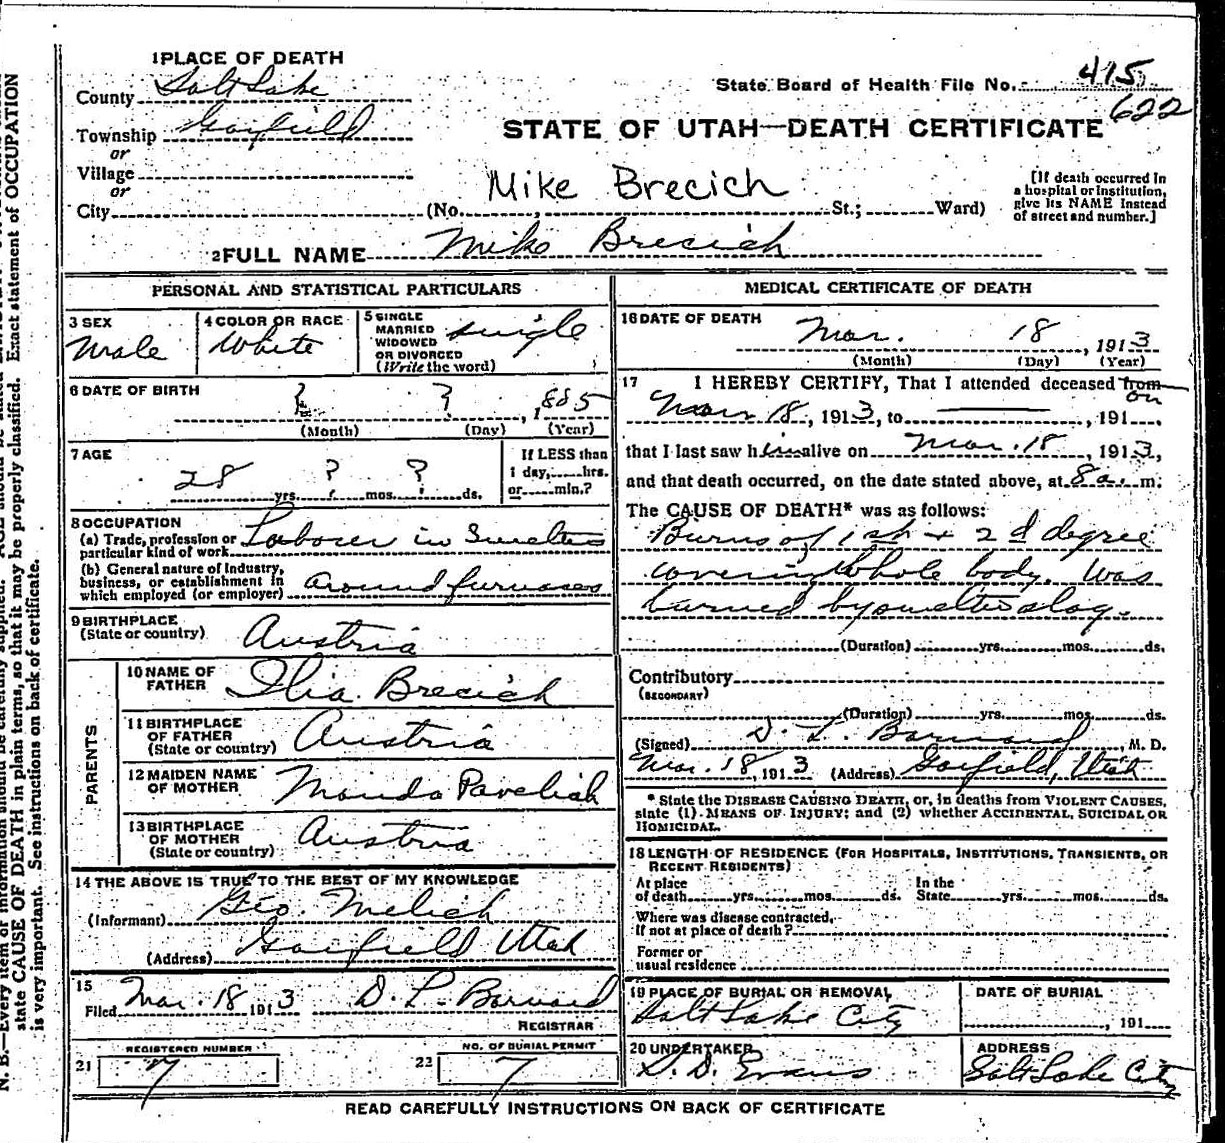 1 PLACE OF DEATH
County Salt Lake
Township Garfield
or
Village
or
City (No. , St.; Ward)
State Board of Health File No. 415
622
STATE OF UTAH—DEATH CERTIFICATE
Mike Brecich
[If death occurred in
a hospital or institution,
give its NAME instead
of street and number.]
2 FULL NAME Mike Brecich
PERSONAL AND STATISTICAL PARTICULARS
3 SEX
Male
4 COLOR OR RACE
White
5 SINGLE
MARRIED
WIDOWED
OR DIVORCED
(Write the word)
single
6 DATE OF BIRTH
? ? , 1885
(Month) (Day) (Year)
7 AGE
28 yrs. ? mos. ? ds.
If LESS than
1 day, hrs.
or min.?
8 OCCUPATION
(a) Trade, profession or
particular kind of work Laborer in Smelters
(b) General nature of Industry,
business, or establishment in
which employed (or employer) around furnaces
9 BIRTHPLACE
(State or country) Austria
PARENTS
10 NAME OF
FATHER Ilia Brecich
11 BIRTHPLACE
OF FATHER
(State or country) Austria
12 MAIDEN NAME
OF MOTHER Manda Pavelich
13 BIRTHPLACE
OF MOTHER
(State or country) Austria
14 THE ABOVE IS TRUE TO THE BEST OF MY KNOWLEDGE
(Informant) Geo. Melich
(Address) Garfield Utah
15
Filed Mar. 18 1913 D. L. Barnard
REGISTRAR
21 REGISTERED NUMBER
7
22 NO. OF BURIAL PERMIT
7
MEDICAL CERTIFICATE OF DEATH
16 DATE OF DEATH
Mar. 18 , 1913
(Month) (Day) (Year)
17 I HEREBY CERTIFY, That I attended deceased from
on
Mar 18, 1913, to , 191
that I last saw him alive on Mar. 18, 1913,
and that death occurred, on the date stated above, at 8 a. m.
The CAUSE OF DEATH* was as follows:
Burns of 1st + 2d degree
covering whole body. Was
burned by smelter slag.
(Duration) yrs. mos. ds.
Contributory
(SECONDARY)
(Duration) yrs. mos. ds.
(Signed) D. L. Barnard, M. D.
Mar. 18, 1913 (Address) Garfield, Utah
* State the DISEASE CAUSING DEATH, or, in deaths from VIOLENT CAUSES,
state (1) MEANS OF INJURY; and (2) whether ACCIDENTAL, SUICIDAL OR
HOMICIDAL.
18 LENGTH OF RESIDENCE (FOR HOSPITALS, INSTITUTIONS, TRANSIENTS, OR
RECENT RESIDENTS)
At place
of death yrs. mos. ds.
In the
State yrs. mos. ds.
Where was disease contracted,
If not at place of death?
Former or
usual residence
19 PLACE OF BURIAL OR REMOVAL
Salt Lake City
DATE OF BURIAL
, 191
20 UNDERTAKER
Evans
ADDRESS
Salt Lake City
READ CAREFULLY INSTRUCTIONS ON BACK OF CERTIFICATE
N. B.—Every item of information should be carefully supplied. AGE should be stated
state CAUSE OF DEATH in plain terms, so that it may be properly classified. Exact statement of OCCUPATION
is very important. See instructions on back of certificate.